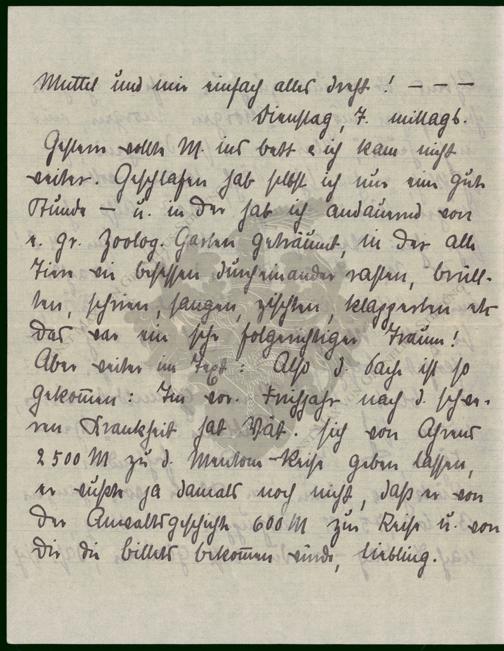 Muttel und mir einfach alles dreht! – – –
Dienstag, 7. mittags.
Gestern wollte M. ins bett & ich kam nicht
weiter. Geschlafen hab selbst ich nur eine gute
Stunde – u. in der hab ich andauernd von
e. gr. Zoolog. Garten geträumt, in der alle
Tiere wie besessen durcheinander rasten, brüll-
ten, schrieen, sangen, zischten, klapperten etc
das war ein sehr folgerichtiger Traum!
Aber weiter im Text: Also d. Sache ist so
gekom̅en: Im vor. Frühjahr nach d. schwe-
ren Krankheit hat Vät. sich von Ahrens
2500 M zu d. Mentone-Reise geben lassen,
er wußte ja damals noch nicht, daß er von
der Anwaltsgeschichte 600 M zur Reise u. von
Dir die billets bekom̅en würde, liebling.